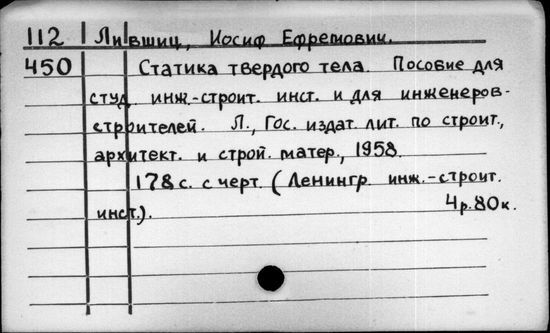 112 Лившиц, Иосиф Ефремович.
450 Статика твердого тела. Пособие для
студ. инж.-строит. инст. и для инженеров-
строителей. Л., Гос. издат. лит. по строит.,
архитект. и строй. матер., 1958.
178 с. с черт. (Ленингр. инж.-строит.
инст.). 4р.80к.